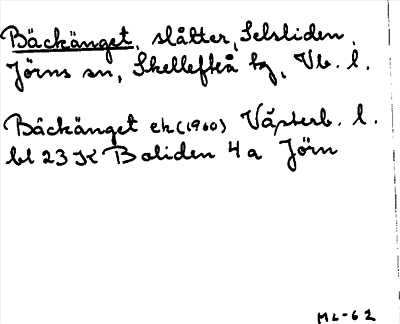 Bäckänget, slåtter, Selsliden,
Jörns sn, Skellefteå tg, Vb. l.
Bäckänget ek (1960) Västerb. l.
bl 23 K Boliden 4 a Jörn
ML-62